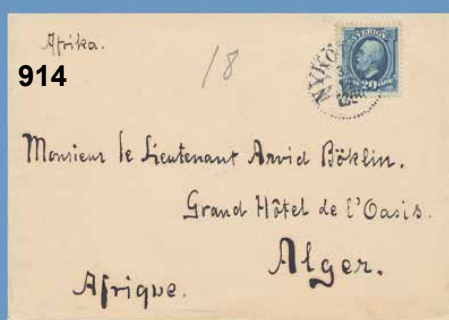 Afrika.
914
18
SVERIGE
20
NYKÖ
Monsieur le Lieutenant Arvid Böklin.
Grand Hôtel de l'Oasis.
Alger.
Afrique.